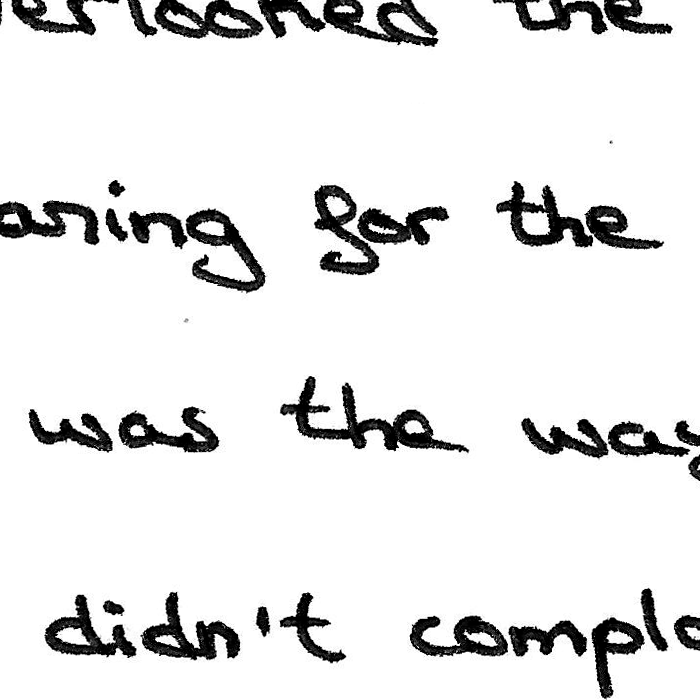 erlooked the
aring for the
was the way
didn't compl